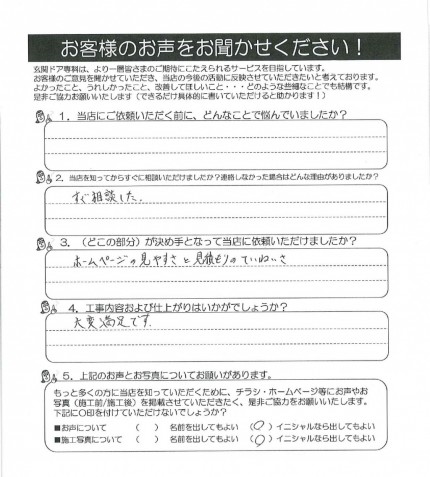 お客様のお声をお聞かせください！
玄関ドア専科は、より一層皆さまのご期待にこたえられるサービスを目指しています。
お客様のご意見を聞かせていただき、当店の今後の活動に反映させていただきたいと考えております。
よかったこと、うれしかったこと、改善してほしいこと・・・どのような些細なことでも結構です。
是非ご協力お願いいたします（できるだけ具体的に書いていただけると助かります！）
１．当店にご依頼いただく前に、どんなことで悩んでいましたか？
２．当店を知ってからすぐに相談いただけましたか？連絡しなかった場合はどんな理由がありましたか？
すぐ相談した.
３．（どこの部分）が決め手となって当店に依頼いただけましたか？
ホームページの見やすさと見積もりのていねいさ
４．工事内容および仕上がりはいかがでしょうか？
大変満足です.
５．上記のお声とお写真についてお願いがあります。
もっと多くの方に当店を知っていただくために、チラシ・ホームページ等にお声やお
写真（施工前/施工後）を掲載させていただきたく、是非ご協力をお願いいたします。
下記に○印を付けていただけないでしょうか？
■お声について （ ） 名前を出してもよい （○）イニシャルなら出してもよい
■施工写真について （ ） 名前を出してもよい （○）イニシャルなら出してもよい